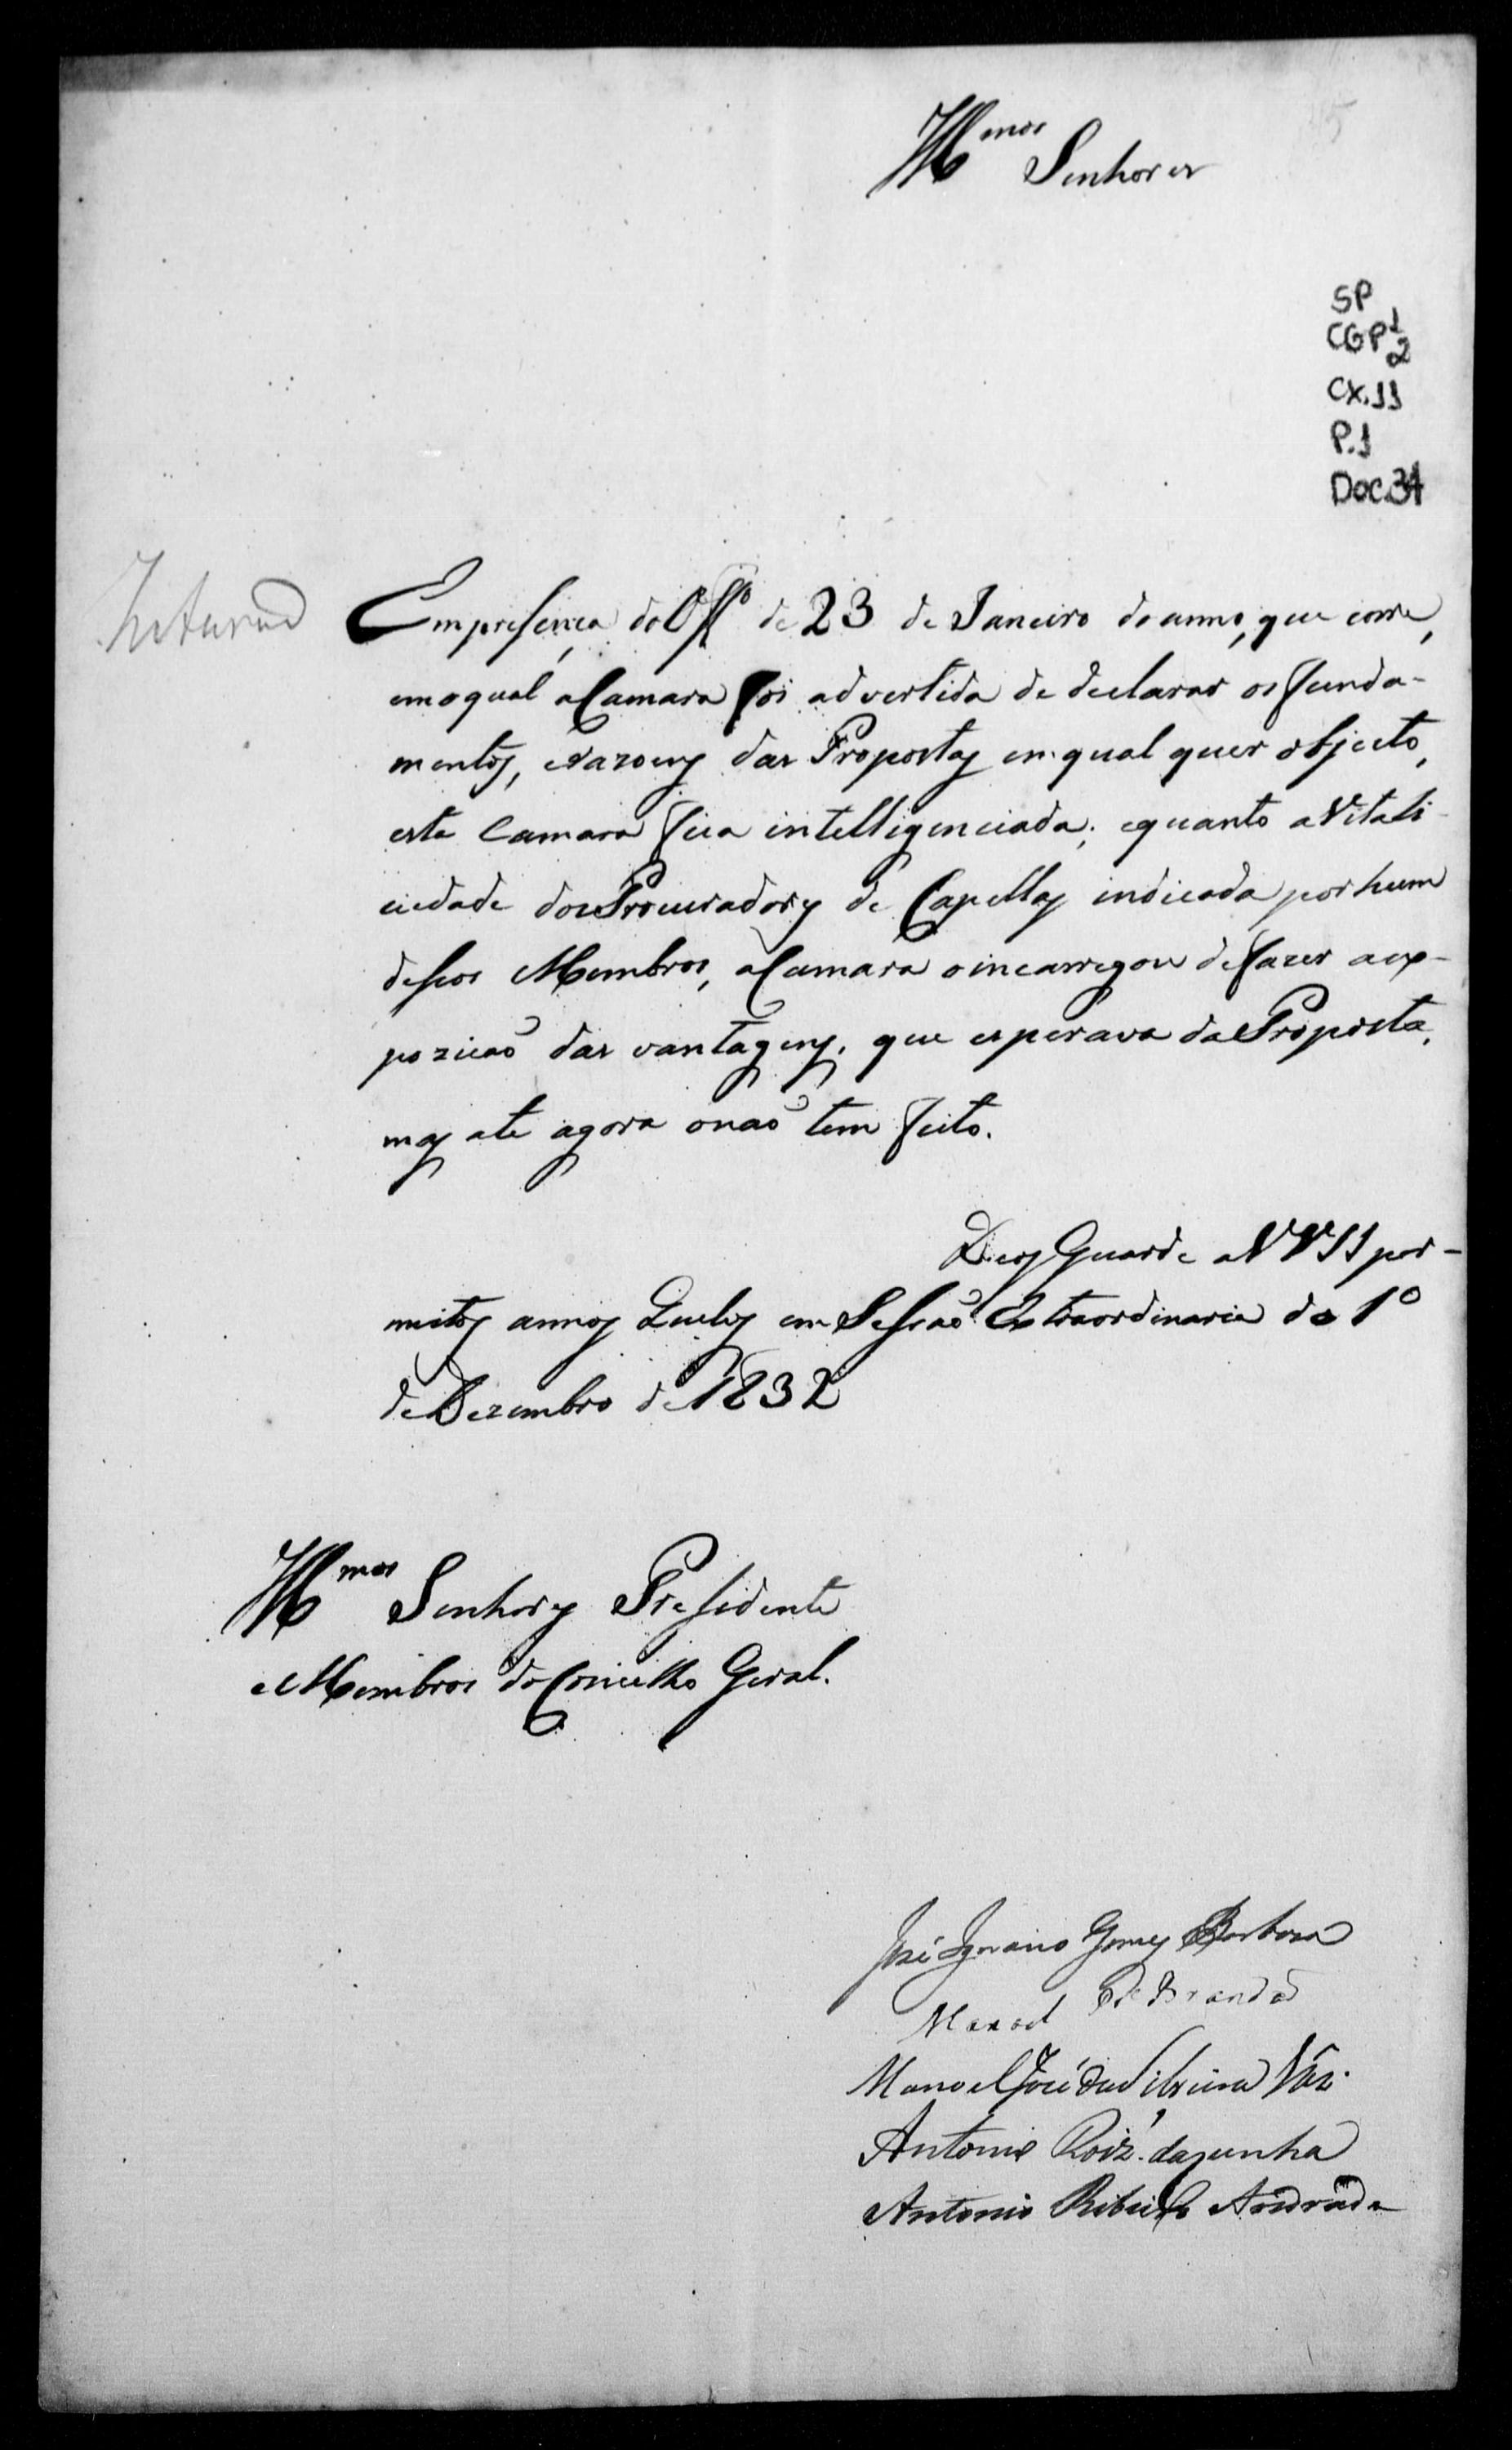 Illmos Senhores
SP
CGP 1
2
CX.11
P.1
Doc.34
Em presença do Offo de 23 de Janeiro do anno, que corre,
em o qual a Camara foi advertida de declarar os funda-
mentos, e razoens das Propostas em qual quer objecto,
esta Camara fica intelligenciada; e quanto a Vitali-
ciedade dos Procuradores de Capellas indicada por hum
de seos Membros, a Camara o incarregou de fazer a ex-
pozicaõ das vantagens, que esperava da Proposta,
mas ate agora o naõ tem feito.
Deos Guarde a VV SS por-
muitos annos Queluz em Sessaõ Extraordinaria do 1º
de Dezembro de 1832
Illmos Senhores Presidente
e Membros do Concelho Geral.
José Ignacio Gomes Barbosa
Manoel Brandaõ
Manoel José da Silveira Váz
Antonio Roiz. da Cunha
Antonio Ribeiro Andrade